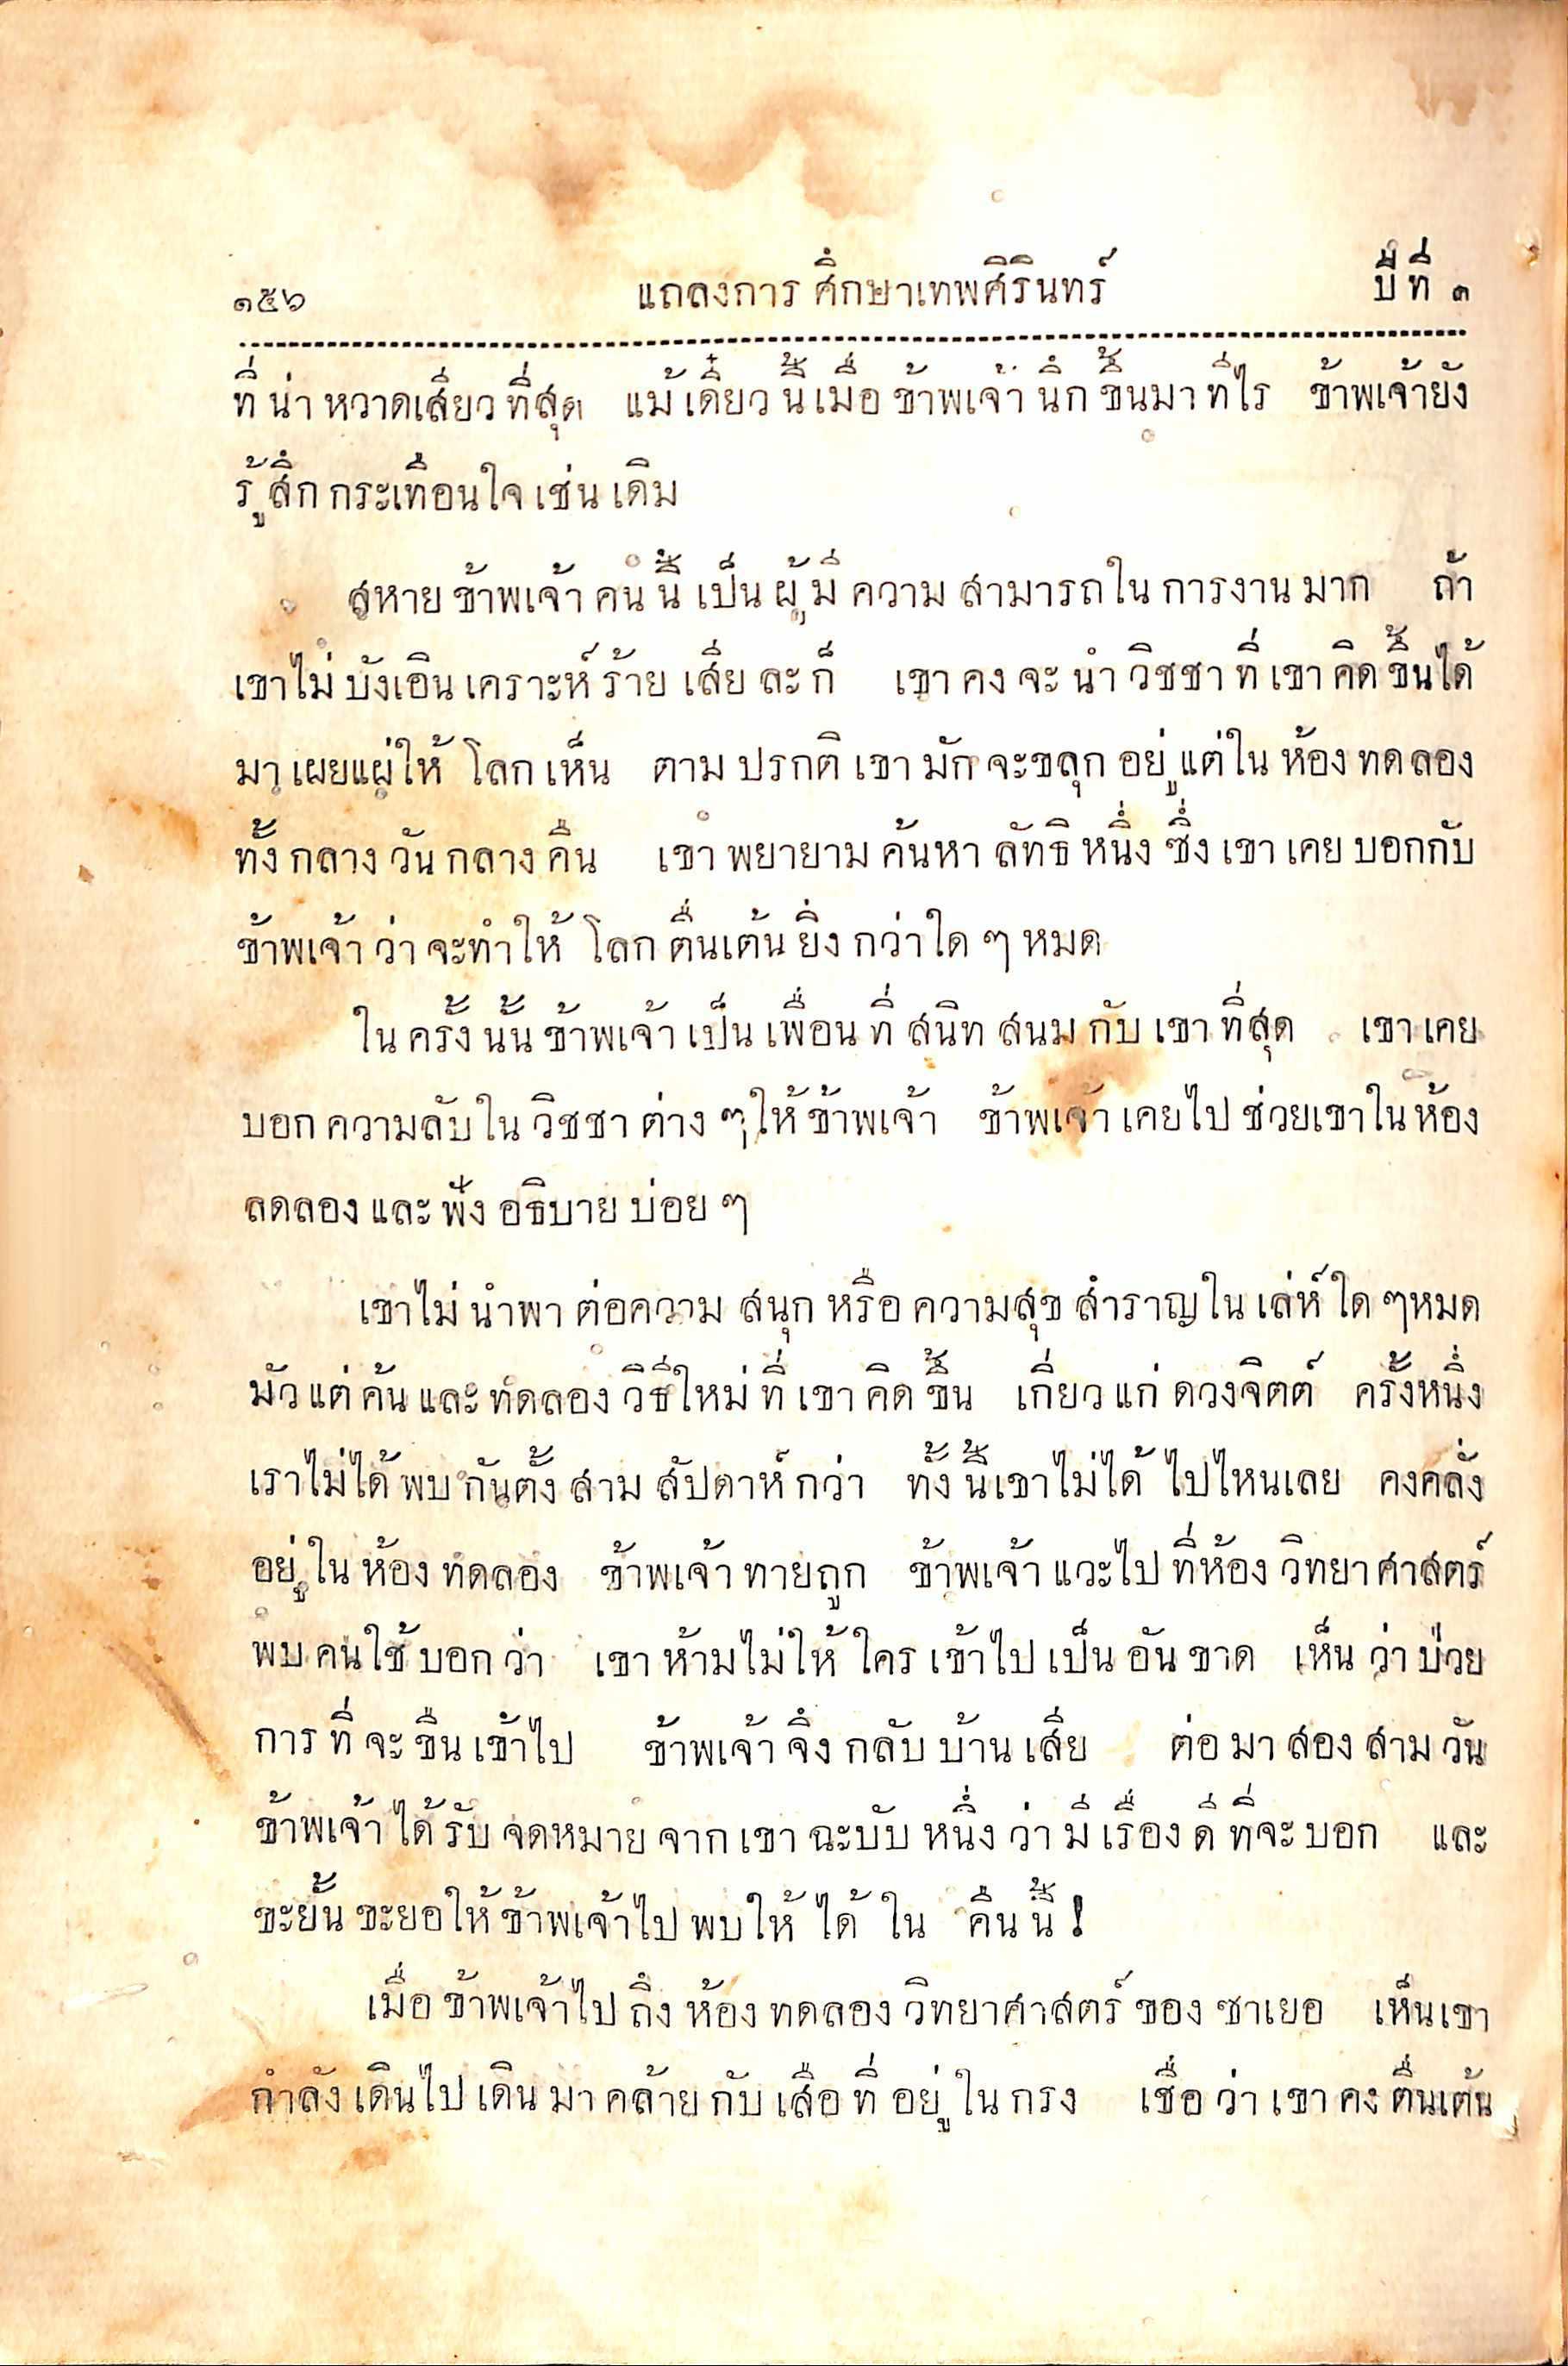 ๑๕๖ แถลงการ ศึกษาเทพศิรินทร์ ปีที่ ๑
ที่น่าหวาดเสียวที่สุด แม้เดี๋ยวนี้เมื่อข้าพเจ้านึกขึ้นมาทีไร ข้าพเจ้ายัง
รู้สึกกระเทือนใจเช่นเดิม
สหายข้าพเจ้าคนนี้เป็นผู้มีความสามารถในการงานมาก ถ้า
เขาไม่บังเอินเคราะห์ร้ายเสียละก็ เขาคงจะนำวิชชาที่เขาคิดขึ้นได้
มาเผยแผ่ให้โลกเห็น ตามปรกติเขามักจะขลุกอยู่แต่ในห้องทดลอง
ทั้งกลางวันกลางคืน เขาพยายามค้นหาลัทธิหนึ่งซึ่งเขาเคยบอกกับ
ข้าพเจ้าว่าจะทำให้โลกตื่นเต้นยิ่งกว่าใดๆหมด
ในครั้งนั้นข้าพเจ้าเป็นเพื่อนที่สนิทสนมกับเขาที่สุด เขาเคย
บอกความลับในวิชชาต่างๆให้ข้าพเจ้า ข้าพเจ้าเคยไปช่วยเขาในห้อง
ลดลองและฟังอธิบายบ่อยๆ
เขาไม่นำพาต่อความสนุกหรือความสุขสำราญในเล่ห์ใดๆหมด
มัวแต่ค้นและทดลองวิธีใหม่ที่เขาคิดขึ้น เกี่ยวแก่ดวงจิตต์ ครั้งหนึ่ง
เราไม่ได้พบกันตั้งสามสัปดาห์กว่า ทั้งนี้เขาไม่ได้ไปไหนเลย คงคลั่ง
อยู่ในห้องทดลอง ข้าพเจ้าทายถูก ข้าพเจ้าแวะไปที่ห้องวิทยาศาสตร์
พบคนใช้บอกว่า เขาห้ามไม่ให้ใครเข้าไปเป็นอันขาด เห็นว่าป่วย
การที่จะขืนเข้าไป ข้าพเจ้าจึงกลับบ้านเสีย ต่อมาสองสามวัน
ข้าพเจ้าได้รับจดหมายจากเขาฉะบับหนึ่งว่ามีเรื่องดีที่จะบอก และ
ขะยั้นขะยอให้ข้าพเจ้าไปพบให้ได้ใน คืนนี้!
เมื่อข้าพเจ้าไปถึงห้องทดลองวิทยาศาสตร์ของซาเยอ เห็นเขา
กำลังเดินไปเดินมาคล้ายกับเสือที่อยู่ในกรง เชื่อว่าเขาคงตื่นเต้น